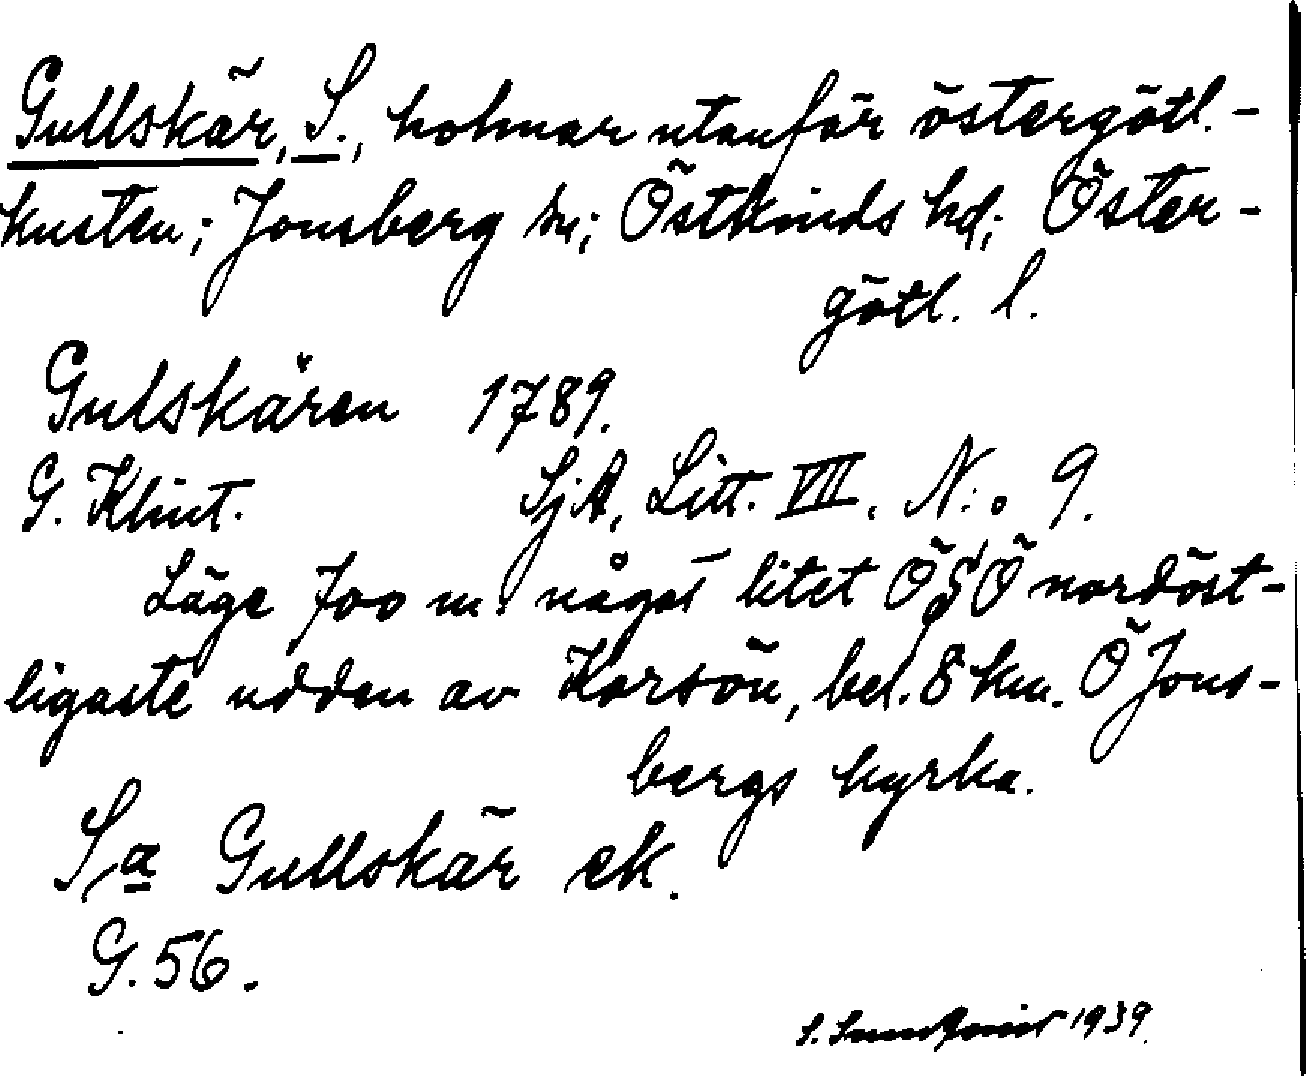 Gullskär, S., holmar utanför östergötl.-
kusten; Jonsberg sn; Östkinds hd; Öster-
götl. l.
Gulskären 1789.
G. Klint. SjA, Litt. VIII. N:o 9.
Läge 700 m. något litet ÖSÖ nordöst-
ligaste udden av Korsön, bel. 8 km. Ö Jons-
bergs kyrka.
Sa Gullskär ek.
G. 56.
S. 1939.